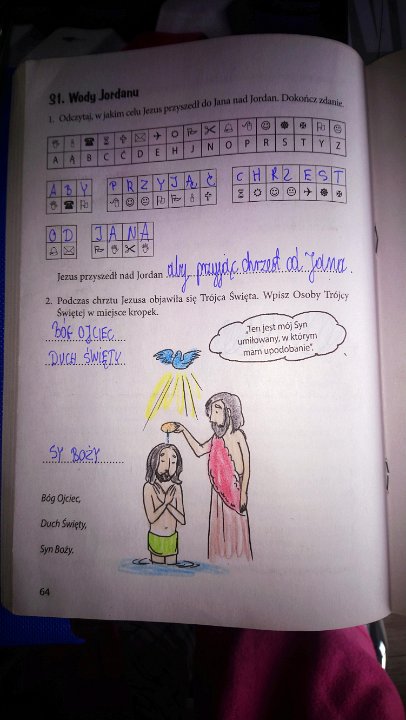 91. Wody Jordanu
1. Odczytaj, w jakim celu Jezus przyszedł do Jana nad Jordan. Dokończ zdanie.
A Ą B C Ć D E H J N O P R S T Y Z
ABY PRZYJĄĆ CHRZEST
OD JANA
Jezus przyszedł nad Jordan aby przyjąc chrzest od Jana.
2. Podczas chrztu Jezusa objawiła się Trójca Święta. Wpisz Osoby Trójcy
Świętej w miejsce kropek.
BÓG OJCIEC
DUCH ŚWIĘTY
„Ten jest mój Syn
umiłowany, w którym
mam upodobanie”.
SY BOŻY
Bóg Ojciec,
Duch Święty,
Syn Boży.
64